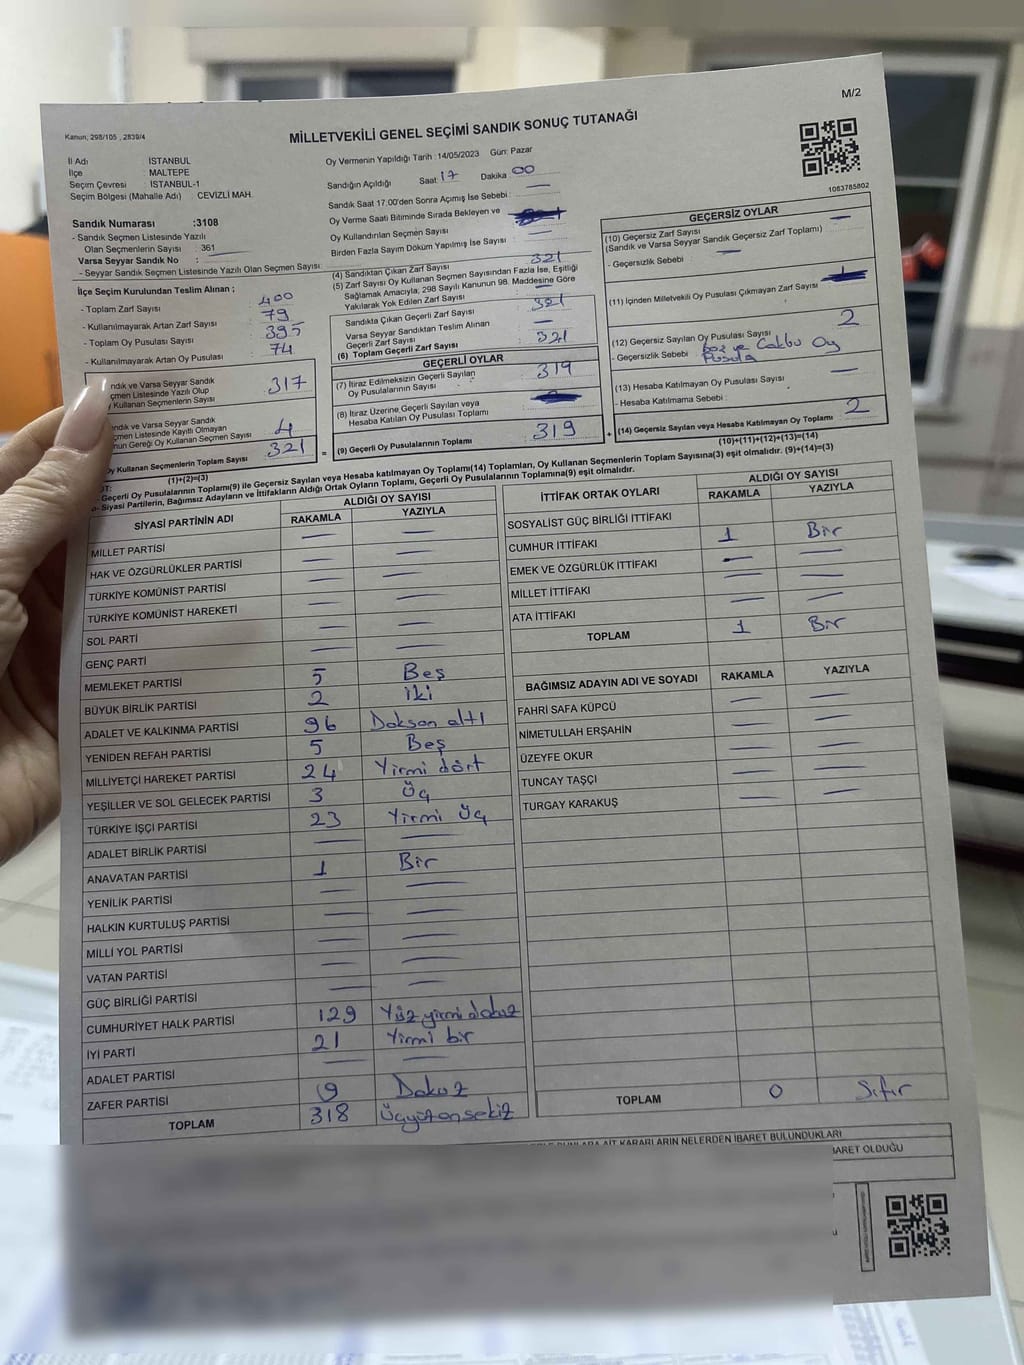 M/2
Kanun; 298/105 , 2839/4
MİLLETVEKİLİ GENEL SEÇİMİ SANDIK SONUÇ TUTANAĞI
1063785802
İl Adı : İSTANBUL
İlçe : MALTEPE
Seçim Çevresi : İSTANBUL-1
Seçim Bölgesi (Mahalle Adı) CEVİZLİ MAH.
Sandık Numarası :3108
- Sandık Seçmen Listesinde Yazılı
Olan Seçmenlerin Sayısı : 361
Varsa Seyyar Sandık No :
- Seyyar Sandık Seçmen Listesinde Yazılı Olan Seçmen Sayısı:
İlçe Seçim Kurulundan Teslim Alınan ;
- Toplam Zarf Sayısı : 400
- Kullanılmayarak Artan Zarf Sayısı : 79
- Toplam Oy Pusulası Sayısı : 395
- Kullanılmayarak Artan Oy Pusulası : 74
ndık ve Varsa Seyyar Sandık
çmen Listesinde Yazılı Olup
Kullanan Seçmenlerin Sayısı 317
ndık ve Varsa Seyyar Sandık
çmen Listesinde Kayıtlı Olmayan
nun Gereği Oy Kullanan Seçmen Sayısı 4
Oy Kullanan Seçmenlerin Toplam Sayısı 321
(1)+(2)=(3)
Oy Vermenin Yapıldığı Tarih :14/05/2023 Gün: Pazar
Sandığın Açıldığı Saat 17 Dakika 00
Sandık Saat 17:00'den Sonra Açımış İse Sebebi : —
Oy Verme Saati Bitiminde Sırada Bekleyen ve
Oy Kullandırılan Seçmen Sayısı : —
Birden Fazla Sayım Döküm Yapılmış İse Sayısı : —
(4) Sandıktan Çıkan Zarf Sayısı : 321
(5) Zarf Sayısı Oy Kullanan Seçmen Sayısından Fazla İse, Eşitliği
Sağlamak Amacıyla; 298 Sayılı Kanunun 98. Maddesine Göre
Yakılarak Yok Edilen Zarf Sayısı : —
Sandıkta Çıkan Geçerli Zarf Sayısı : 321
Varsa Seyyar Sandıktan Teslim Alınan
Geçerli Zarf Sayısı : —
(6) Toplam Geçerli Zarf Sayısı : 321
GEÇERLİ OYLAR
(7) İtiraz Edilmeksizin Geçerli Sayılan
Oy Pusulalarının Sayısı : 319
(8) İtiraz Üzerine Geçerli Sayılan veya
Hesaba Katılan Oy Pusulası Toplamı :
(9) Geçerli Oy Pusulalarının Toplamı : 319
GEÇERSİZ OYLAR
(10) Geçersiz Zarf Sayısı : —
(Sandık ve Varsa Seyyar Sandık Geçersiz Zarf Toplamı)
- Geçersizlik Sebebi : —
(11) İçinden Milletvekili Oy Pusulası Çıkmayan Zarf Sayısı :
(12) Geçersiz Sayılan Oy Pusulası Sayısı : 2
- Geçersizlik Sebebi : boş ve Oy
Pusula
(13) Hesaba Katılmayan Oy Pusulası Sayısı : —
- Hesaba Katılmama Sebebi :
(14) Geçersiz Sayılan veya Hesaba Katılmayan Oy Toplamı : 2
(10)+(11)+(12)+(13)=(14)
OT:
- Geçerli Oy Pusulalarının Toplamı(9) ile Geçersiz Sayılan veya Hesaba katılmayan Oy Toplamı(14) Toplamları, Oy Kullanan Seçmenlerin Toplam Sayısına(3) eşit olmalıdır. (9)+(14)=(3)
- Siyasi Partilerin, Bağımsız Adayların ve İttifakların Aldığı Ortak Oyların Toplamı, Geçerli Oy Pusulalarının Toplamına(9) eşit olmalıdır.
SİYASİ PARTİNİN ADI ALDIĞI OY SAYISI
RAKAMLA YAZIYLA
MİLLET PARTİSİ — —
HAK VE ÖZGÜRLÜKLER PARTİSİ — —
TÜRKİYE KOMÜNİST PARTİSİ — —
TÜRKİYE KOMÜNİST HAREKETİ — —
SOL PARTİ — —
GENÇ PARTİ — —
MEMLEKET PARTİSİ 5 Beş
BÜYÜK BİRLİK PARTİSİ 2 iki
ADALET VE KALKINMA PARTİSİ 96 Doksan altı
YENİDEN REFAH PARTİSİ 5 Beş
MİLLİYETÇİ HAREKET PARTİSİ 24 Yirmi dört
YEŞİLLER VE SOL GELECEK PARTİSİ 3 Üç
TÜRKİYE İŞÇİ PARTİSİ 23 Yirmi Üç
ADALET BİRLİK PARTİSİ — —
ANAVATAN PARTİSİ 1 Bir
YENİLİK PARTİSİ — —
HALKIN KURTULUŞ PARTİSİ — —
MİLLİ YOL PARTİSİ — —
VATAN PARTİSİ — —
GÜÇ BİRLİĞİ PARTİSİ — —
CUMHURİYET HALK PARTİSİ 129 Yüz yirmi dokuz
İYİ PARTİ 21 Yirmi bir
ADALET PARTİSİ — —
ZAFER PARTİSİ 9 Dokuz
TOPLAM 318 Üçyüzonsekiz
İTTİFAK ORTAK OYLARI ALDIĞI OY SAYISI
RAKAMLA YAZIYLA
SOSYALİST GÜÇ BİRLİĞİ İTTİFAKI
CUMHUR İTTİFAKI 1 Bir
EMEK VE ÖZGÜRLÜK İTTİFAKI — —
MİLLET İTTİFAKI — —
ATA İTTİFAKI — —
TOPLAM 1 Bir
BAĞIMSIZ ADAYIN ADI VE SOYADI RAKAMLA YAZIYLA
FAHRİ SAFA KÜPCÜ — —
NİMETULLAH ERŞAHİN — —
ÜZEYFE OKUR — —
TUNCAY TAŞÇI — —
TURGAY KARAKUŞ — —
TOPLAM 0 Sıfır
BUNLARA AİT KARARLARIN NELERDEN İBARET BULUNDUKLARI
İBARET OLDUĞU